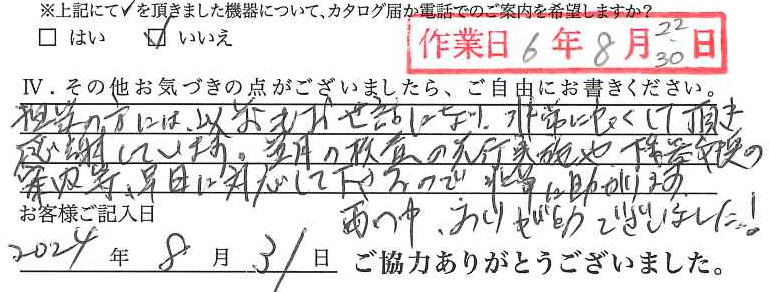 ※上記にて✓を頂きました機器について、カタログ届か電話でのご案内を希望しますか?
□ はい ☑ いいえ
作業日 6年8月22・30日
Ⅳ.その他お気づきの点がございましたら、ご自由にお書きください。
担当の方には、以前もお世話になり、非常に良くして頂き
感謝しています。翌月の検査の先行実施や機器交換の
案内等、早目に対応して下さるので非常に助かります。
雨の中、ありがとうございました!
お客様ご記入日
2024年8月31日 ご協力ありがとうございました。